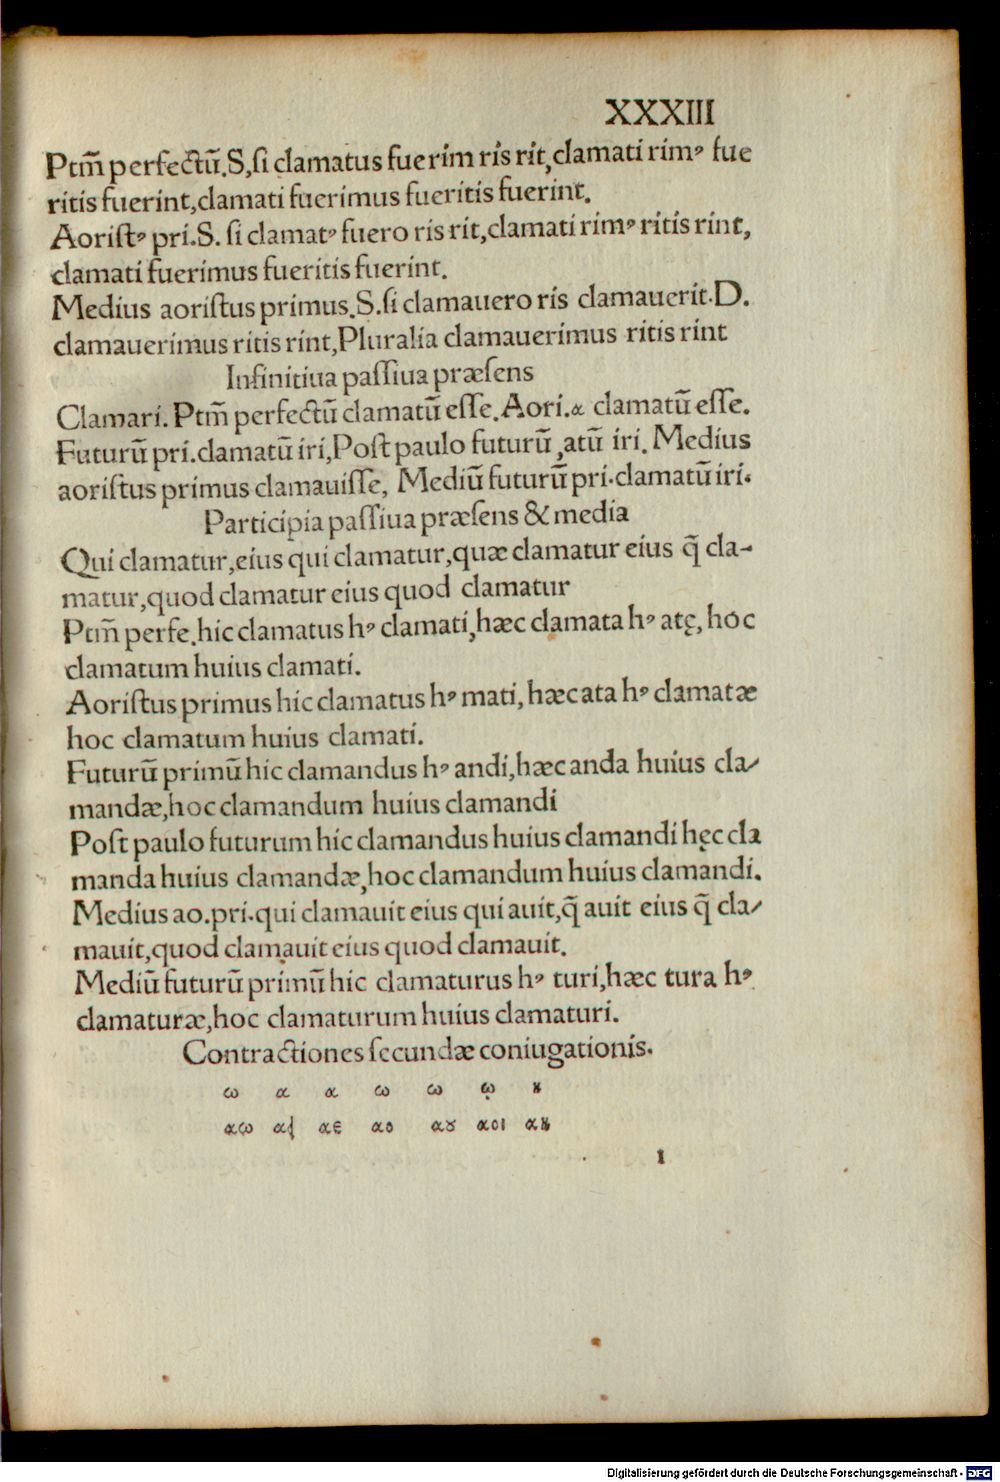 XXXIII
Ptm̄ perfectū.S,ſi clamatus fuerim ris rit,clamati rimꝰ fue
ritis fuerint,clamati fuerimus fueritis fuerint.
Aoriſtꝰ pri.S. ſi clamatꝰ fuero ris rit,clamati rimꝰ ritis rint,
clamati fuerimus fueritis fuerint.
Medius aoriſtus primus.S.ſi clamauero ris clamauerit.D.
clamauerimus ritis rint,Pluralia clamauerimus ritis rint
Infinitiua paſſiua præſens
Clamari. Ptm̄ perfectū clamatū eſſe.Aori.α clamatū eſſe.
Futurū pri.clamatū iri,Poſt paulo futurū,atū iri. Medius
aoriſtus primus clamauiſſe, Mediū futurū pri.clamatū iri.
Participia paſſiua præſens & media
Qui clamatur,eius qui clamatur,quæ clamatur eius q̄ cla-
matur,quod clamatur eius quod clamatur
Ptm̄ perfe.hic clamatus hꝰ clamati,hæc clamata hꝰ atę, hoc
clamatum huius clamati.
Aoriſtus primus hic clamatus hꝰ mati, hæc ata hꝰ clamatæ
hoc clamatum huius clamati.
Futurū primū hic clamandus hꝰ andi,hæc anda huius cla/
mandæ,hoc clamandum huius clamandi
Poſt paulo futurum hic clamandus huius clamandi hęc cla
manda huius clamandæ,hoc clamandum huius clamandi.
Medius ao.pri.qui clamauit eius qui auit,q̄ auit eius q̄ cla/
mauit,quod clamauit eius quod clamauit.
Mediū futurū primū hic clamaturus hꝰ turi,hæc tura hꝰ
clamaturæ,hoc clamaturum huius clamaturi.
Contractiones ſecundæ coniugationis.
ω α α ω ω ῳ ȣ
αω αῃ αε αο αȣ αοι αȣ
I
Digitalisierung gefördert durch die Deutsche Forschungsgemeinschaft - DFG